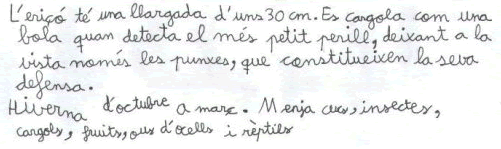 L'eriçó té una llargada d'uns 30 cm. Es cargola com una
bola quan detecta el més petit perill, deixant a la
vista només les punxes, que constitueixen la seva
defensa.
Hiverna d'octubre a març. Menja cucs, insectes,
cargols, fruits, ous d'ocells i rèptils